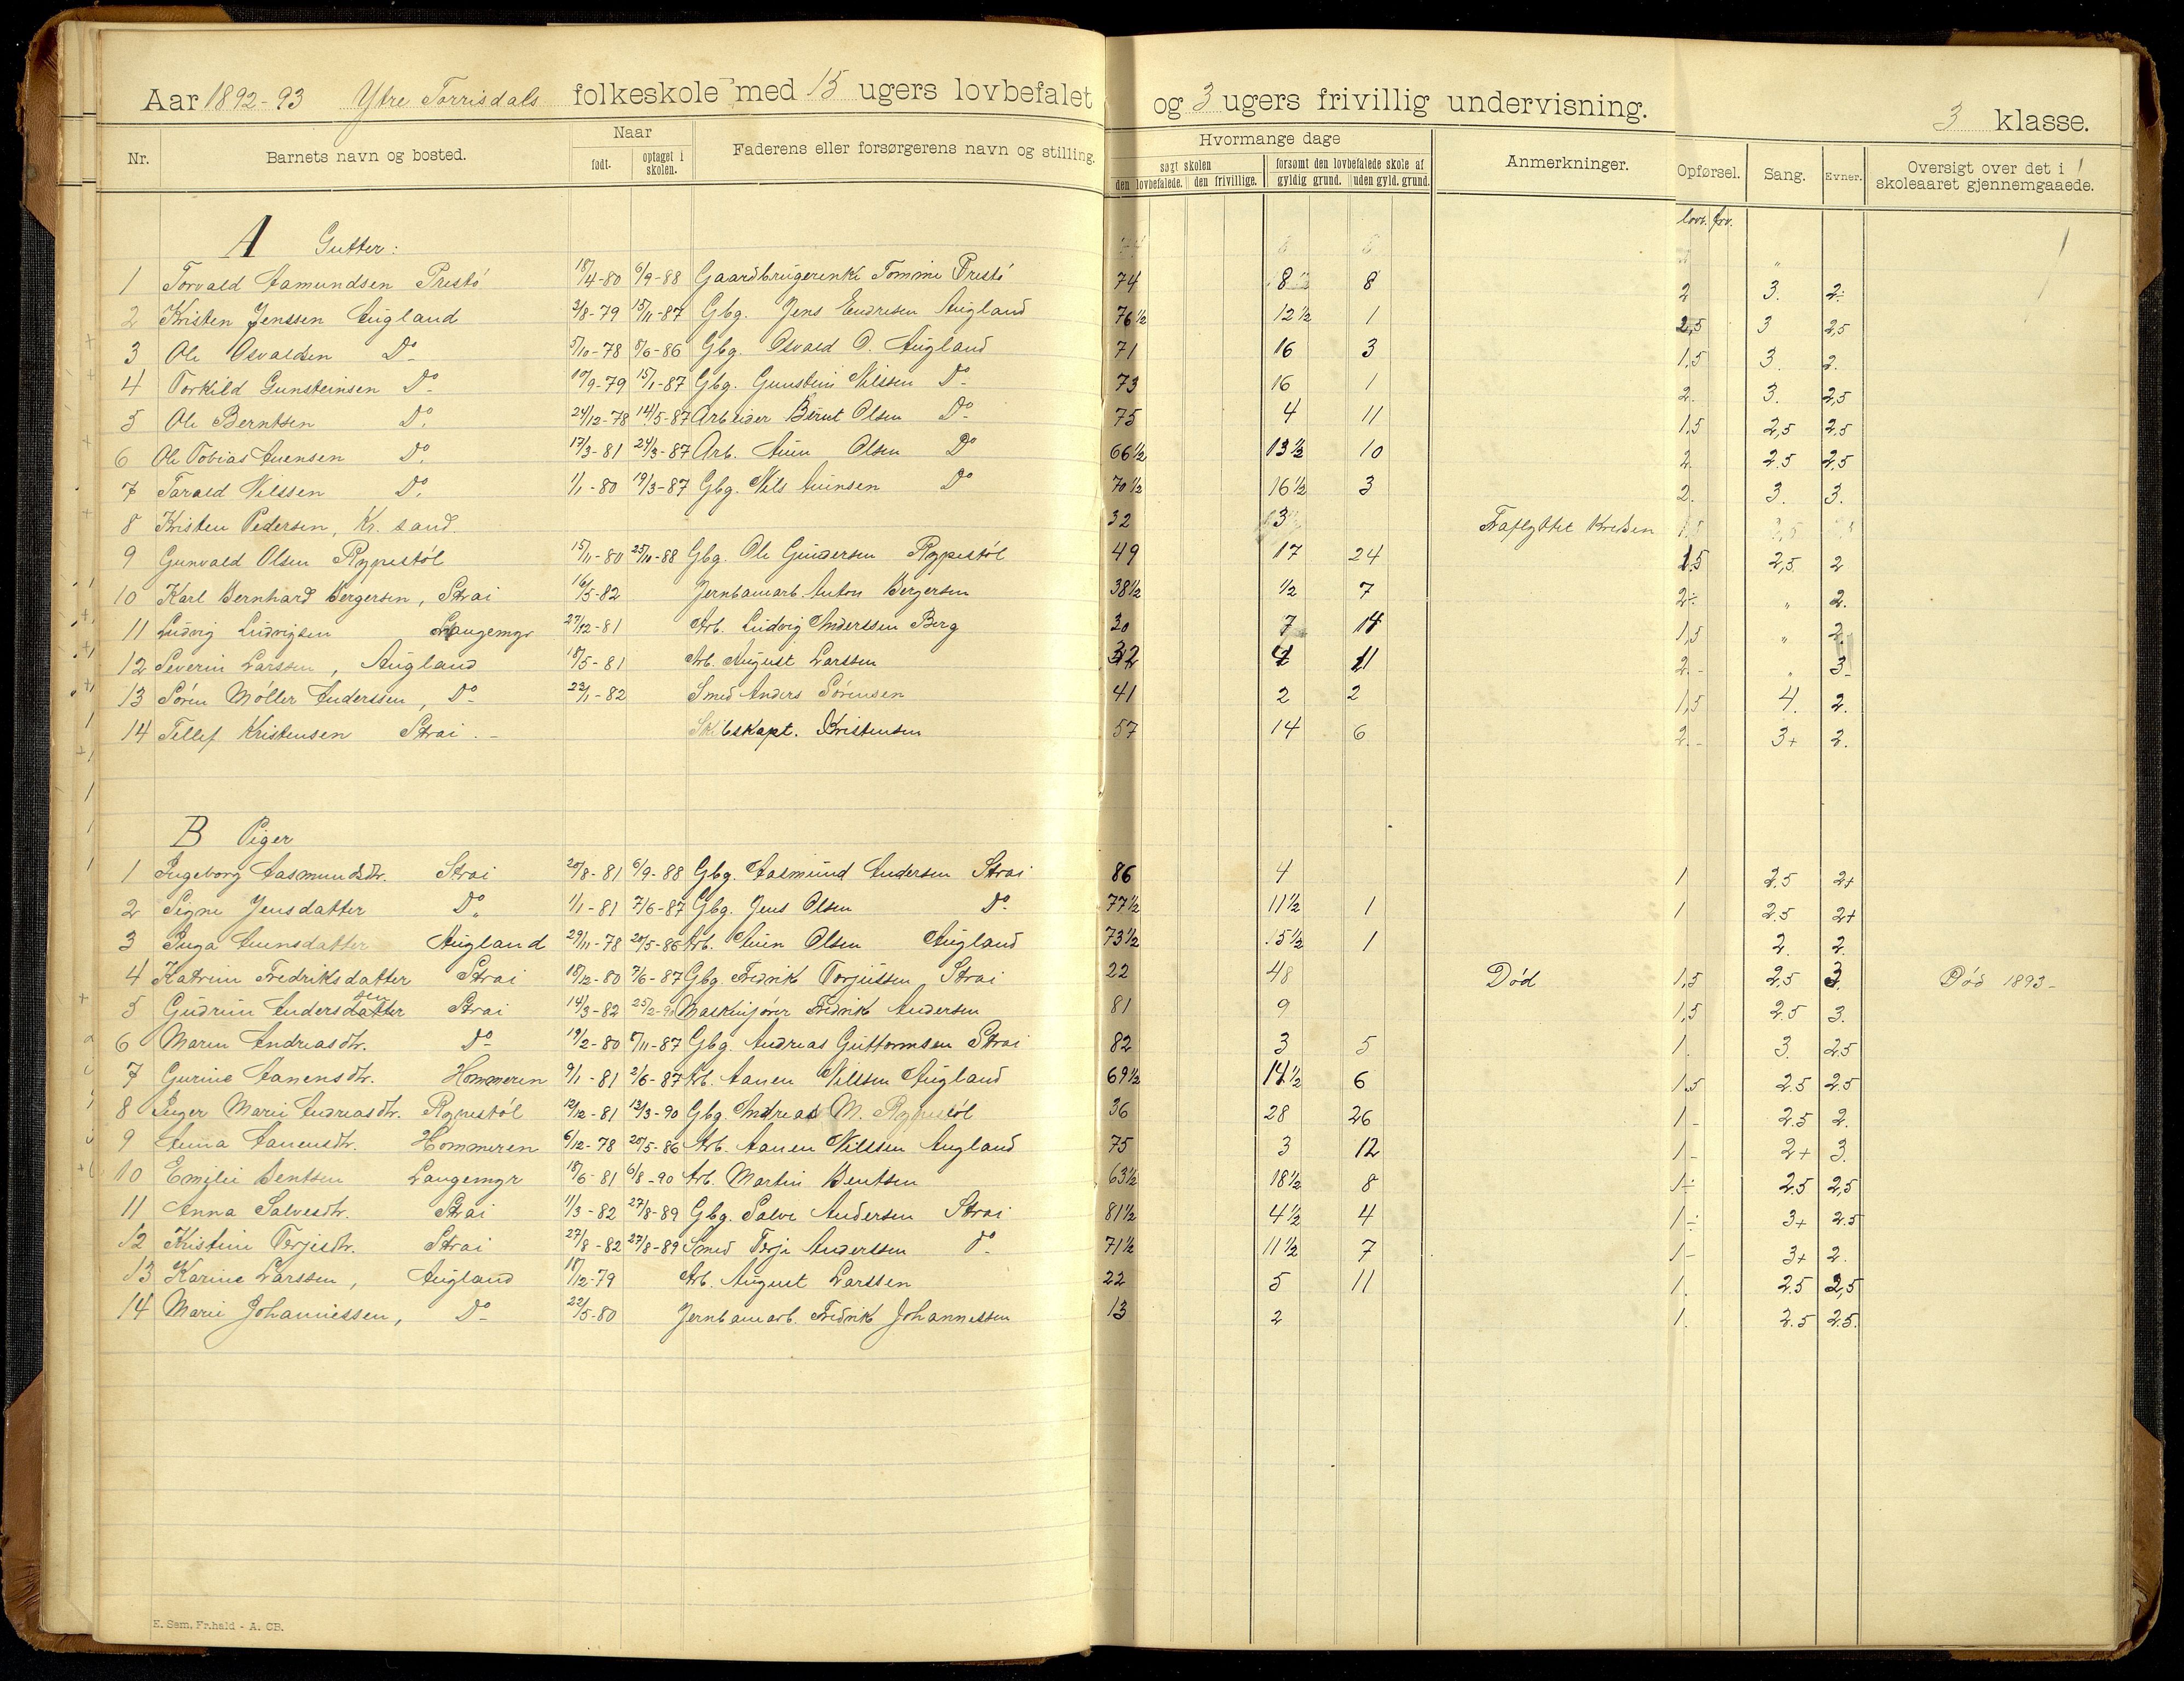 Aar 1892-93 Ytre Torrisdals folkeskole med 15 ugers lovbefalet og 3 ugers frivillig undervisning. 3 klasse.
Nr. Barnets navn og bosted. Naar født. optaget i skolen. Faderens eller forsørgerens navn og stilling. Hvormange dage søgt skolen den lovbefalede. den frivillige. forsømt den lovbefalede skole af gyldig grund. uden gyld. grund. Anmerkninger. Opførsel. Sang. Evner. Oversigt over det i skoleaaret gjennemgaaede.
lovb. frv.
A Gutter:
1 Torvald Aamundsen Prestö 18/4-80 6/9-88 Gaardbrugerenke Tomine Prestö 74 8 8 2 3. 2÷
2 Kristen Jenssen Augland 3/8-79 15/11-87 Gbg. Jens Endresen Augland 76½ 12½ 1 2,5 3 2,5
3 Ole Osvaldsen Do 5/10-78 8/6-86 Gbg. Osvald O. Augland 71 16 3 1,5 3. 2.
4 Torkild Gunsteinsen Do 10/9-79 15/1-87 Gbg. Gunstein Nilssen Do 73 16 1 2. 3. 2,5
5 Ole Berntsen Do. 24/12-78 14/5-87 Arbeider Bernt Olsen Do 75 4 11 1,5 2,5 2.5
6 Ole Tobias Auensen Do. 17/3-81 24/3-87 Arb. Auen Olsen Do 66½ 13½ 10 2. 2.5 2.5
7 Tarald Nilssen Do. 1/1-80 19/3-87 Gbg. Nils Auensen Do 70½ 16½ 3 2. 3. 3.
8 Kristen Pedersen, Kr. sand. 32 3 Fraflyttet
9 Gunvald Olsen Rypestöl 15/11-80 25/10-88 Gbg. Ole Gundersen Rypestöl 49 17 24 1.5 2,5 2
10 Karl Bernhard Bergersen, Strai 16/5-82 Jernbanarb. Anton Bergersen 38½ ½ 7 2÷ " 2.
11 Ludvig Ludvigsen Langemyr 27/12-81 Arb. Ludvig Anderssen Berg 30 7 14 1,5 " 2.
12 Severin Larssen, Augland 18/5-81 Arb. August Larssen 32 4 11 2.- " 3-
13 Sören Möller Anderssen, Do 23/1-82 Smed Anders Sörensen 41 2 2 1,5 4. 2.
14 Tellef Kristensen Strai. Skibskapt. Kristensen 57 14 6 2.- 3+ 2.
B Piger
1 Ingeborg Aasmundsdtr. Strai 20/8-81 6/9-88 Gbg. Aasmund Andersen Strai 86 4 1 2.5 2+
2 Signe Jensdatter Do 1/1-81 7/6-87 Gbg. Jens Olsen Do 77½ 11½ 1 1 2.5 2+
3 Inga Auensdatter Augland 29/11-78 20/5-86 Arb. Auen Olsen Augland 73½ 15½ 1 2. 2.
4 Katrine Fredriksdatter Strai 18/12-80 7/6-87 Gbg. Fredrik Torjussen Strai 22 48 Död 1,5 2,5 3. Död 1893-
5 Gudrun Andersdatter sen Strai 14/3-82 25/2-90 Maskinförer Fredrik Andersen 81 9 1,5 2.5 3.
6 Maren Andreasdtr. Do 19/2-80 8/11-87 Gbg. Andreas Guttormsen Strai 82 3 5 1. 3. 2.5
7 Gurine Aanensdtr. Hommeren 9/1-81 2/6-87 Arb. Aanen Nilssen Augland 69½ 14½ 6 1,5 2.5 2.5
8 Inger Marie Andreasdtr. Rypestöl 12/12-81 13/3-90 Gbg. Andreas M. Rypestöl 36 28 26 1- 2.5 2.
9 Anna Aanensdtr. Hommeren 6/12-78 20/5-86 Arb. Aanen Nilssen Augland 75 3 12 1- 2+ 3.
10 Emilie Bentsen Langemyr 18/6-81 6/8-90 Arb. Martin Bentsen 63½ 18½ 8 1÷ 2.5 2,5
11 Anna Salvesdtr. Strai 11/3-82 27/8-89 Gbg. Salve Andersen Strai 81½ 4½ 4 1÷ 3+ 2.5
12 Kristine Terjesdtr. Strai 27/8-82 27/8-89 Smed Terje Anderssen Do 71½ 11½ 7 1- 3+ 2.
13 Karine Larssen, Augland 18/12-79 Arb. August Larssen 22 5 11 1. 2.5 2,5
14 Marie Johannessen, Do 22/5-80 Jernbanarb. Fredrik Johannessen 13 2 1. 2.5 2.5.
E. Sem. Fr.hald - A. CB.